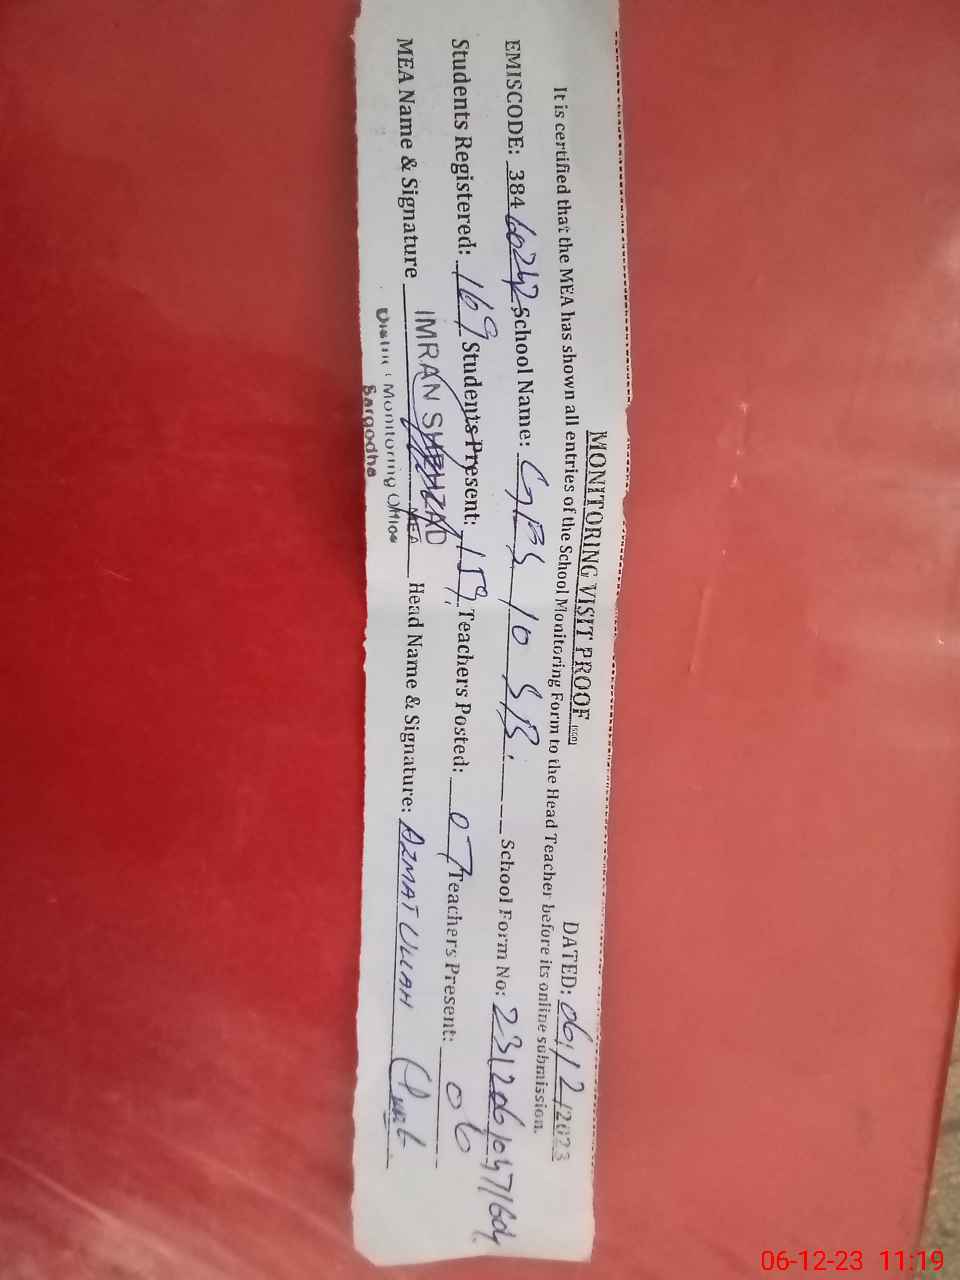 MONITORING VISIT PROOF
DATED: 06/12/2023
It is certified that the MEA has shown all entries of the School Monitoring Form to the Head Teacher before its online submission.
EMISCODE: 38460242 School Name: GBS 10 SB. School Form No:
Students Registered: 169 Students Present: 159 Teachers Posted: 07 Teachers Present: 06
MEA Name & Signature IMRAN SHAHZAD Head Name & Signature: AZMAT ULLAH
MEA
District Monitoring Office
Sargodha
06-12-23 11:19